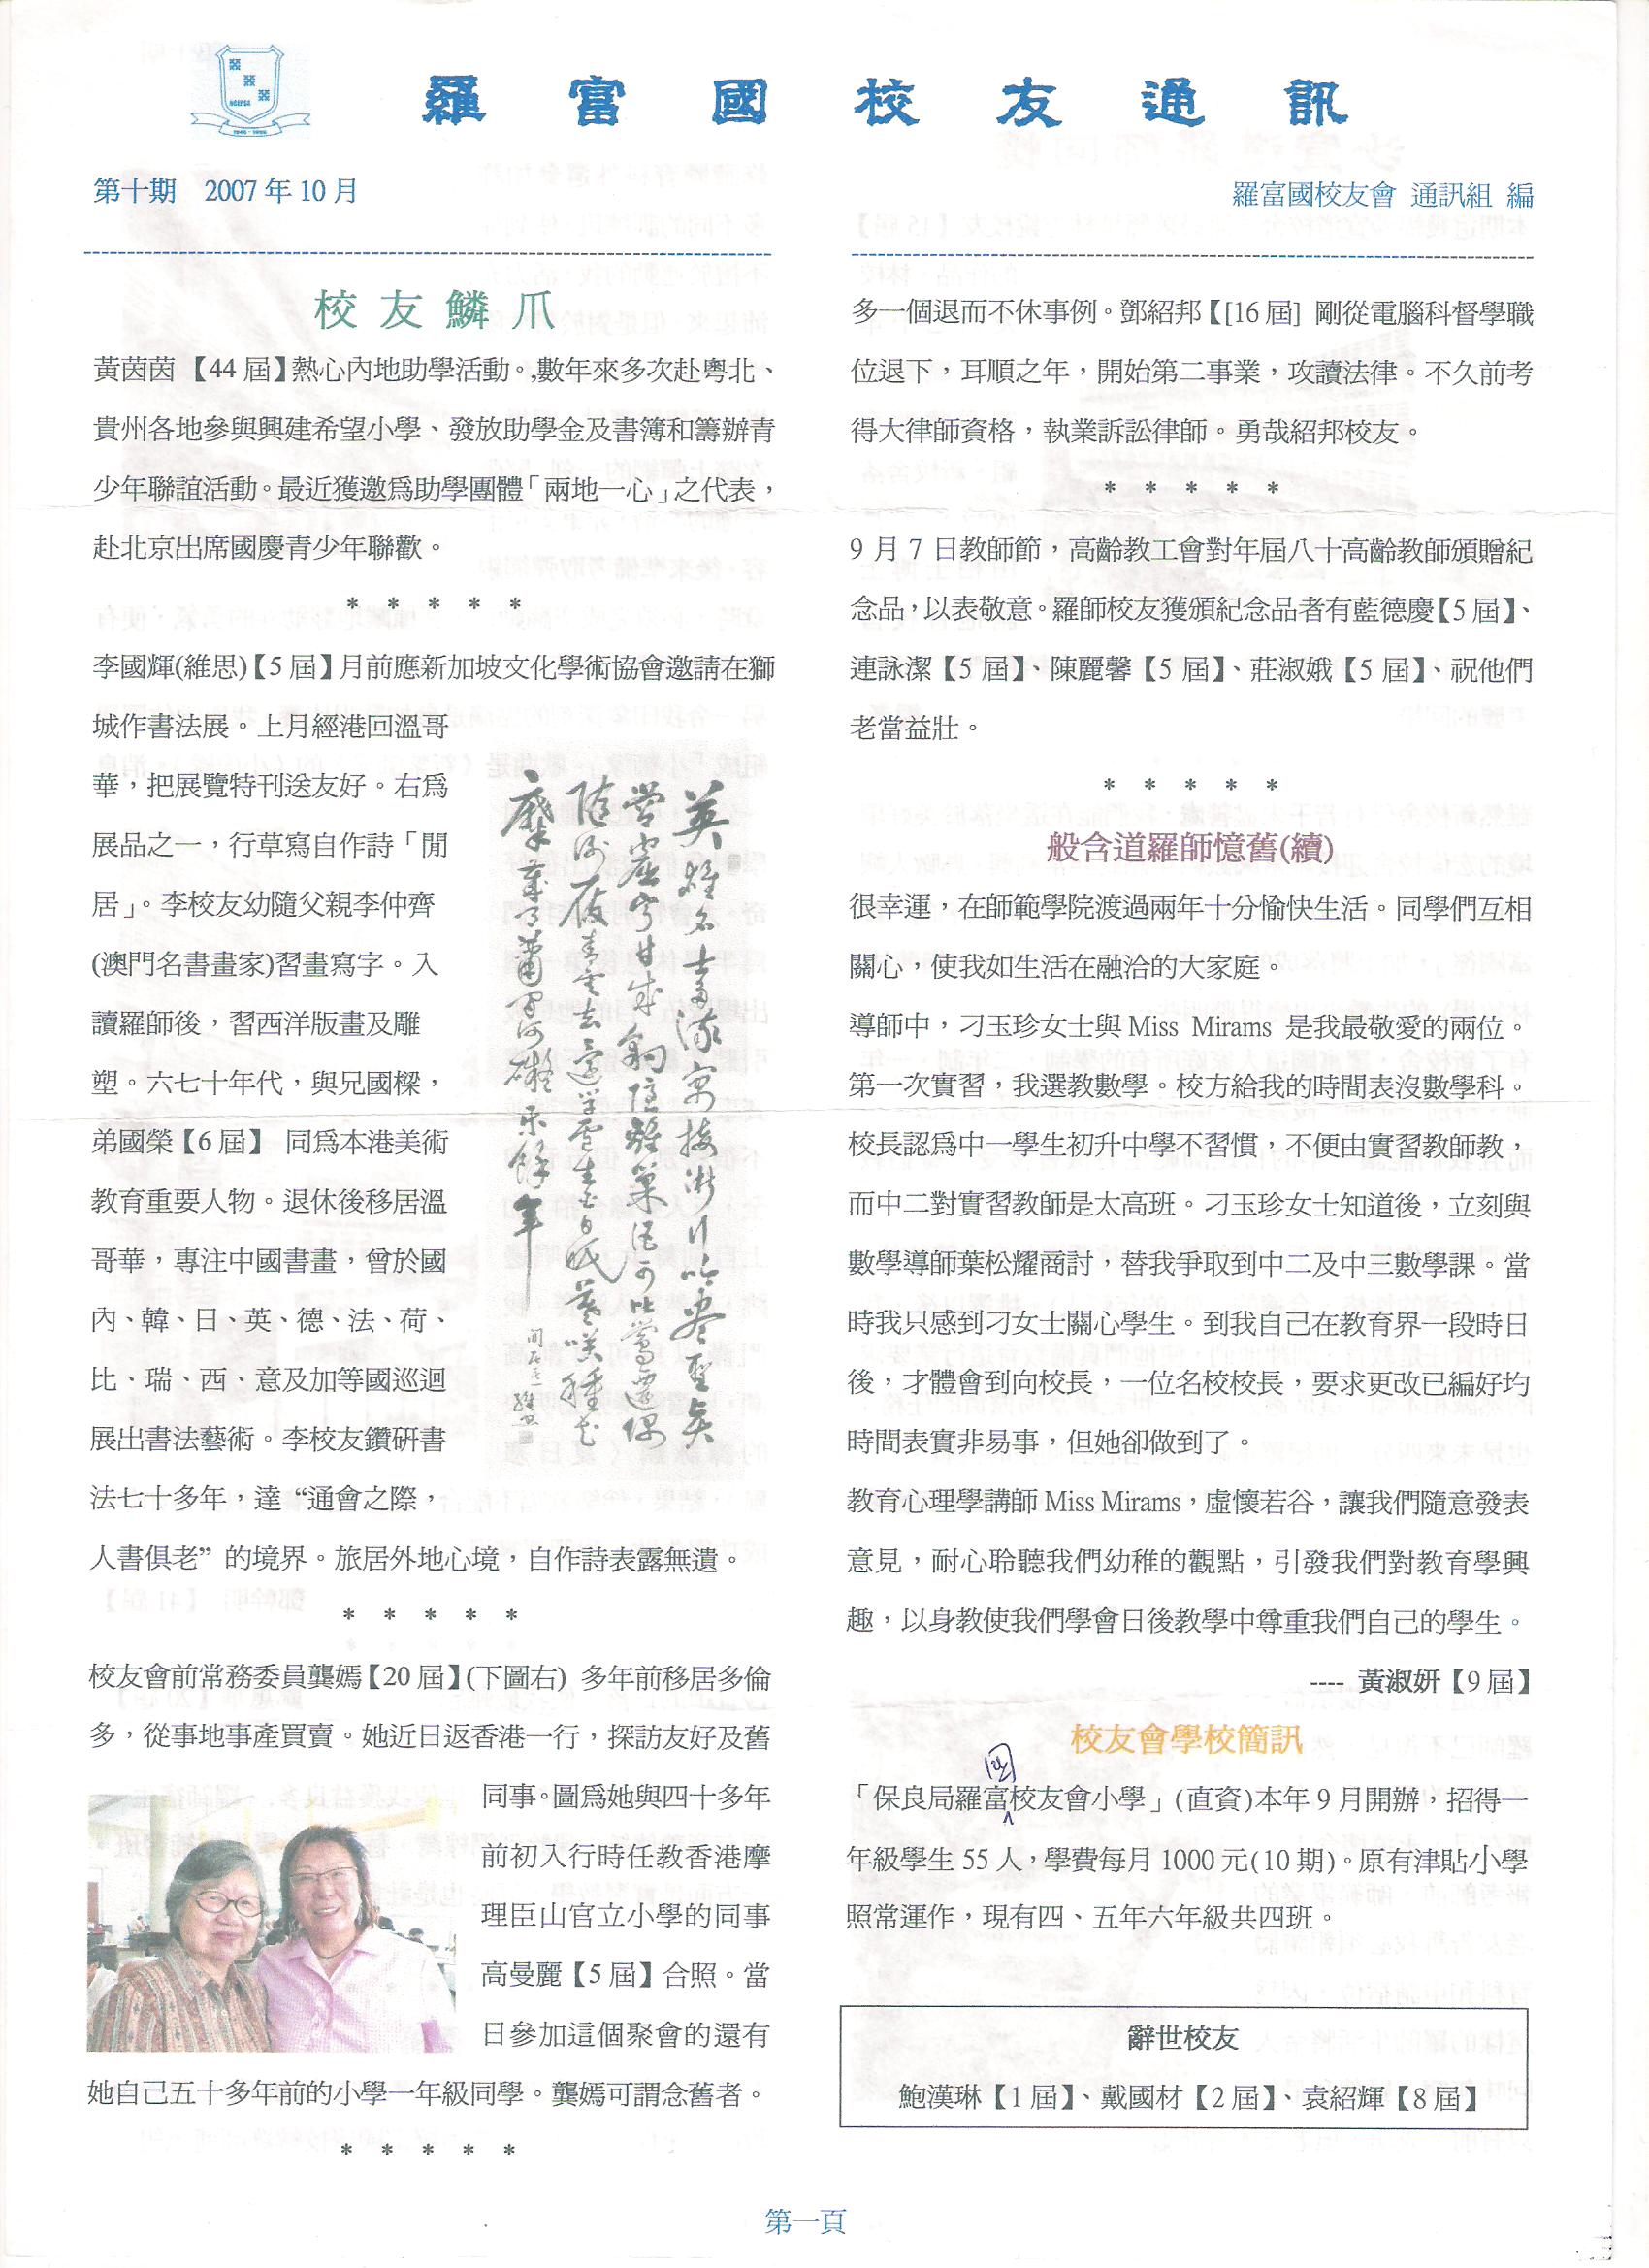 羅富國校友通訊
第十期 2007年10月
羅富國校友會 通訊組 編
校友鱗爪
黃茵茵【44屆】熱心內地助學活動。,數年來多次赴粵北、
貴州各地參與興建希望小學、發放助學金及書簿和籌辦青
少年聯誼活動。最近獲邀為助學團體「兩地一心」之代表，
赴北京出席國慶青少年聯歡。
* * * * *
李國輝(維思)【5屆】月前應新加坡文化學術協會邀請在獅
城作書法展。上月經港回溫哥
華，把展覽特刊送友好。右為
展品之一，行草寫自作詩「閒
居」。李校友幼隨父親李仲齊
(澳門名書畫家)習畫寫字。入
讀羅師後，習西洋版畫及雕
塑。六七十年代，與兄國樑，
弟國榮【6屆】 同為本港美術
教育重要人物。退休後移居溫
哥華，專注中國書畫，曾於國
內、韓、日、英、德、法、荷、
比、瑞、西、意及加等國巡迴
展出書法藝術。李校友鑽研書
法七十多年，達“通會之際，
人書俱老” 的境界。旅居外地心境，自作詩表露無遺。
* * * * *
校友會前常務委員龔嫣【20屆】(下圖右) 多年前移居多倫
多，從事地事產買賣。她近日返香港一行，探訪友好及舊
同事。圖為她與四十多年
前初入行時任教香港摩
理臣山官立小學的同事
高曼麗【5屆】合照。當
日參加這個聚會的還有
她自己五十多年前的小學一年級同學。龔嫣可謂念舊者。
* * * * *
多一個退而不休事例。鄧紹邦【[16屆] 剛從電腦科督學職
位退下，耳順之年，開始第二事業，攻讀法律。不久前考
得大律師資格，執業訴訟律師。勇哉紹邦校友。
* * * * *
9月7日教師節，高齡教工會對年屆八十高齡教師頒贈紀
念品，以表敬意。羅師校友獲頒紀念品者有藍德慶【5屆】、
連詠潔【5屆】、陳麗馨【5屆】、莊淑娥【5屆】、祝他們
老當益壯。
* * * * *
般含道羅師憶舊(續)
很幸運，在師範學院渡過兩年十分愉快生活。同學們互相
關心，使我如生活在融洽的大家庭。
導師中，刁玉珍女士與 Miss Mirams 是我最敬愛的兩位。
第一次實習，我選教數學。校方給我的時間表沒數學科。
校長認為中一學生初升中學不習慣，不便由實習教師教，
而中二對實習教師是太高班。刁玉珍女士知道後，立刻與
數學導師葉松耀商討，替我爭取到中二及中三數學課。當
時我只感到刁女士關心學生。到我自己在教育界一段時日
後，才體會到向校長，一位名校校長，要求更改已編好均
時間表實非易事，但她卻做到了。
教育心理學講師 Miss Mirams，虛懷若谷，讓我們隨意發表
意見，耐心聆聽我們幼稚的觀點，引發我們對教育學興
趣，以身教使我們學會日後教學中尊重我們自己的學生。
---- 黃淑妍【9屆】
校友會學校簡訊
國
「保良局羅富校友會小學」(直資)本年9月開辦，招得一
年級學生55人，學費每月1000元(10期)。原有津貼小學
照常運作，現有四、五年六年級共四班。
辭世校友
鮑漢琳【1屆】、戴國材【2屆】、袁紹輝【8屆】
第一頁